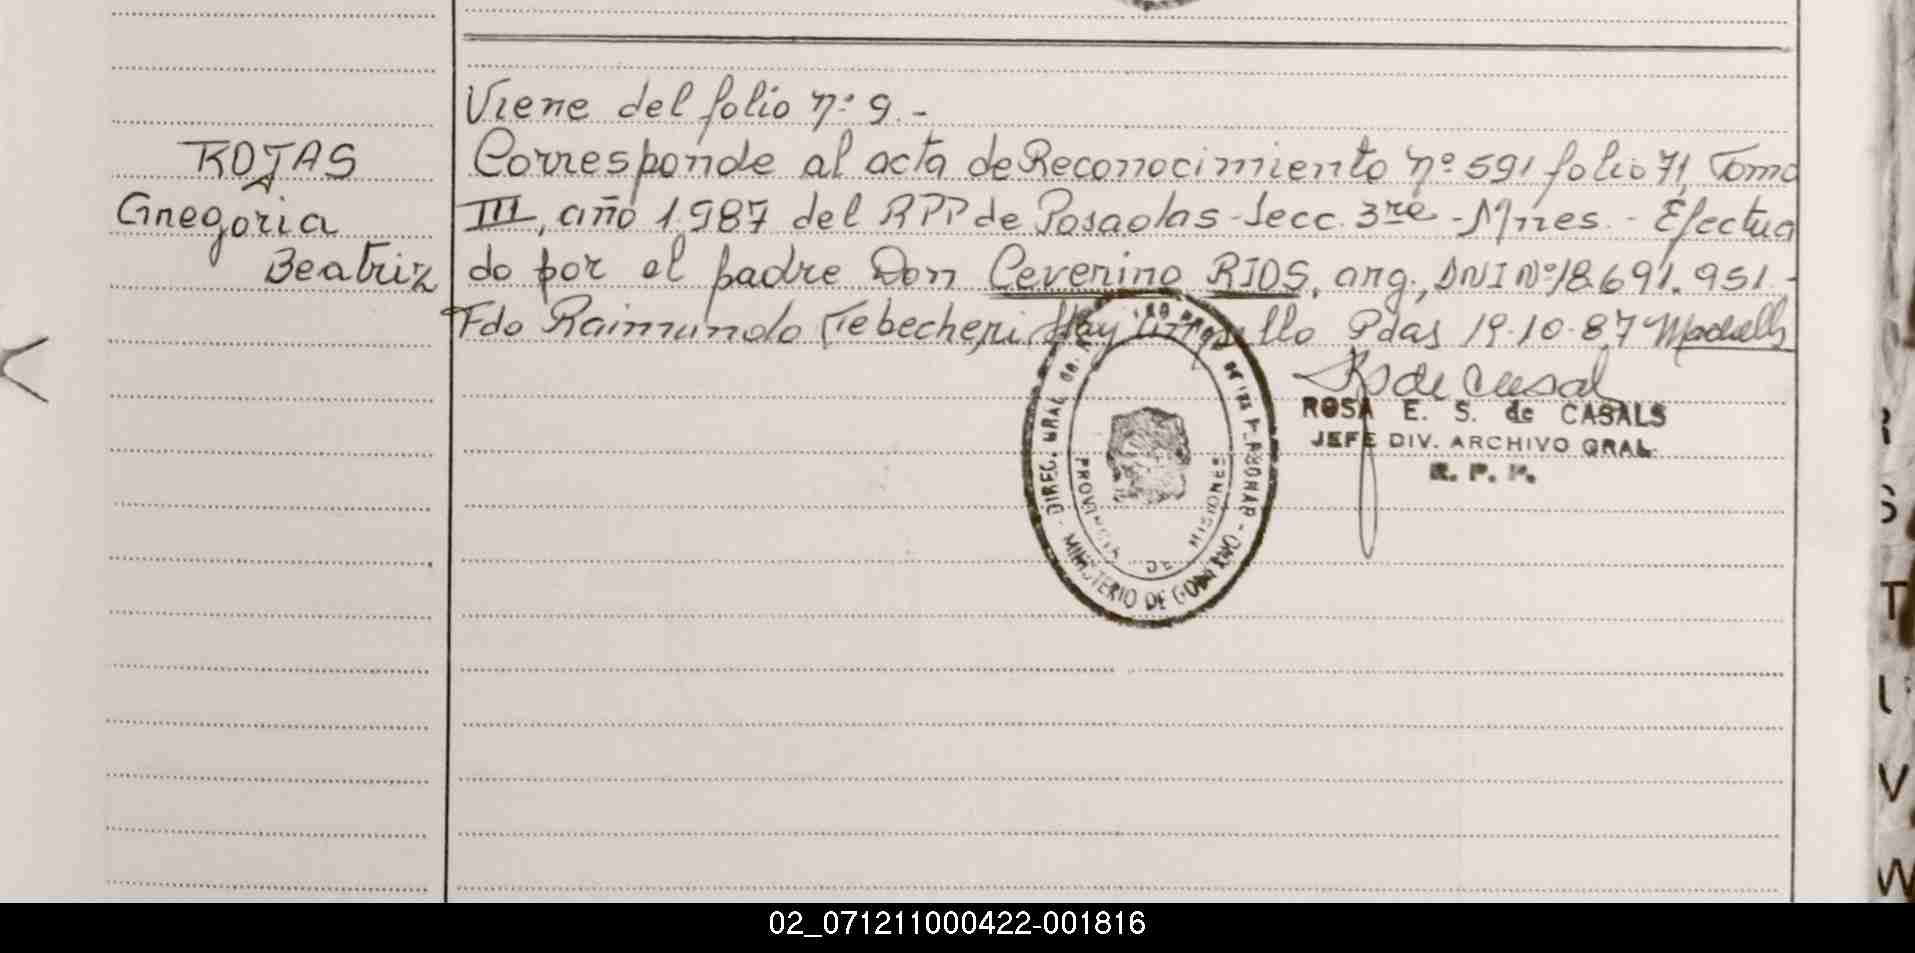 Viene del folio nº 9.-
ROJAS
Gregoria
Beatriz
Corresponde al acta de Reconocimiento nº 591 folio 71, Tomo
III, año 1.987 del RPP de Posadas-Secc. 3ra - Mnes. - Efectua
do por el padre Don Ceverino RIOS, arg., DNI Nº 18.691.951.-
Fdo Raimundo Tebecheri Hay un sello Pdas 19-10-87
ROSA E. S. de CASALS
JEFE DIV. ARCHIVO GRAL.
R. P. P.
DIREC. GRAL. DE LAS PERSONAS - MINISTERIO DE GOBIERNO -
PROVINCIA DE MISIONES
R
S
T
V
W
02_071211000422-001816